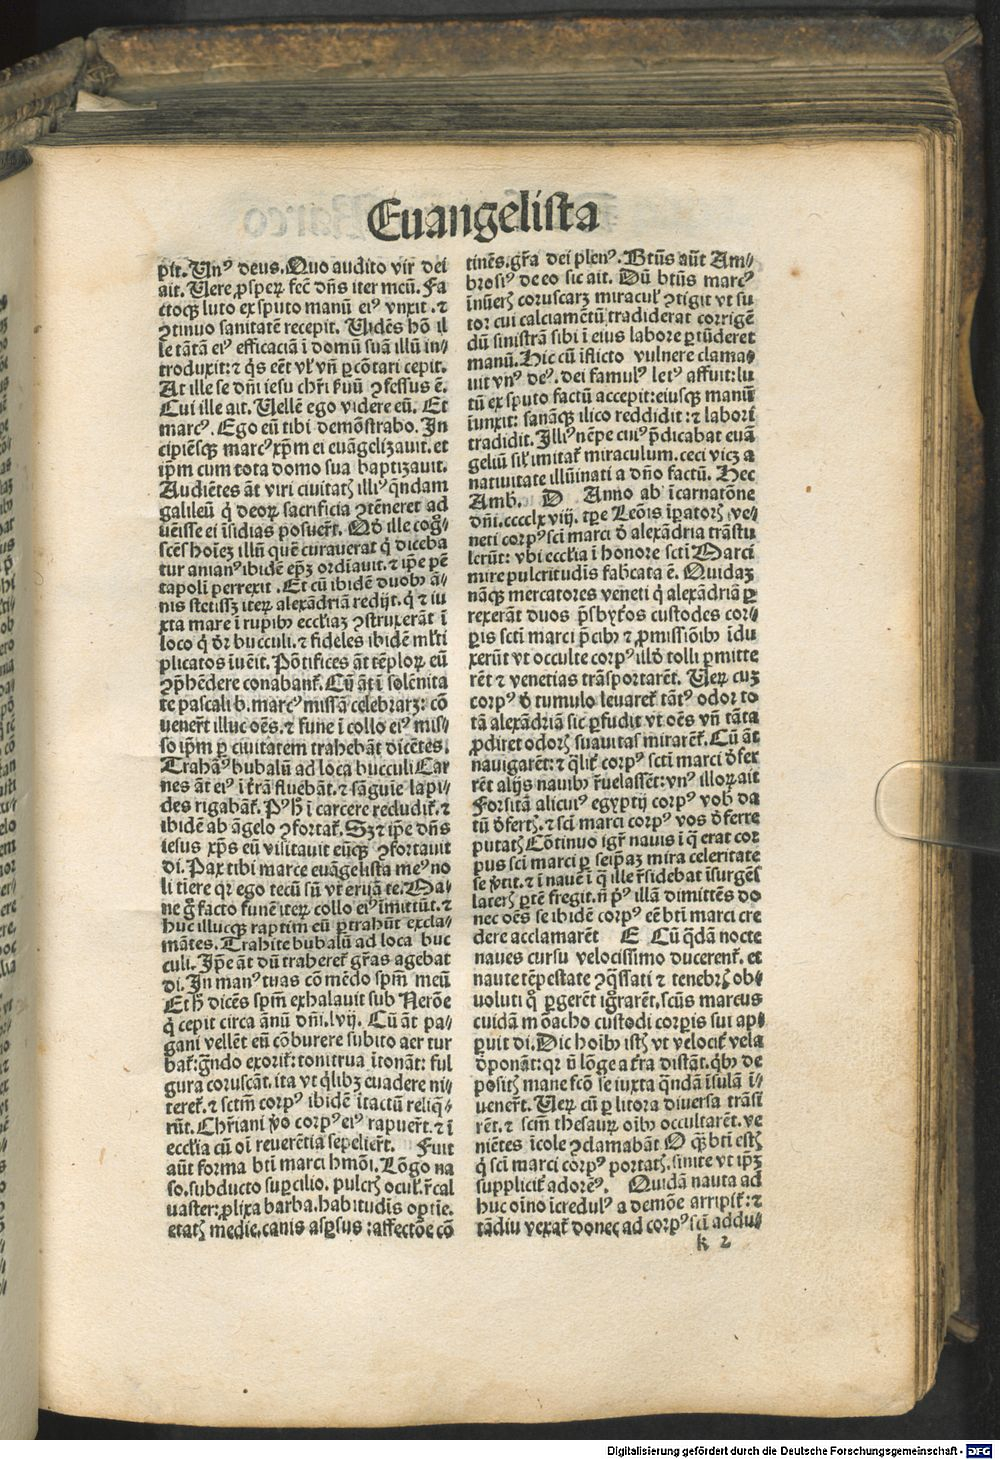 Euangelista
pit. Vnꝰ deus. Quo audito vir dei
ait. Uere ꝓsperꝝ fecꝭ dñs iter meū. Fa
ctoqꝫ luto ex sputo manū eiꝰ vnxit. ⁊
ꝯtinuo sanitatē recepit. Uidēs hō il
le tātā eiꝰ efficaciā ī domū suā illū in⸗
troduxit: ⁊ qͥs eēt vl̓ vñ ꝑcōtari cepit.
At ille se dñi iesu chr̄i ẜuū ꝯfessus ē.
Cui ille ait. Uellē ego videre eū. Et
marcꝰ. Ego eū tibi demōstrabo. In
cipiēsqꝫ marcꝰ xp̄m ei euāgelizauit. et
ip̄m cum tota domo sua baptizauit.
Audiētes āt viri ciuitatꝭ illiꝰ qͥndam
galileū qͥ deoꝝ sacrificia ꝯtēneret ad
ueisse ei īsidias posuerūt. Qd̓ ille cog⸗
scēs hoīeꝫ illū quē curauerat qͥ diceba
tur anianꝰ ibidē ep̄ꝫ ordīauit. ⁊ ip̄e pē
tapolī perrexit. Et cū ibidē duobꝰ ā⸗
nis stetissꝫ iteꝝ alexādriā redijt. qͥ ⁊ iu
xta mare ī rupibꝰ ecclīaꝫ ꝯstruxerāt ī
loco qͥ dr̄ bucculi. ⁊ fideles ibidē ml̓ti
plicatos īuēit. Pōtifices āt tēploꝝ eū
ꝯp̄hēdere conabanť. Cū āt ī solēnita
te pascali b. marcꝰ missā celebrarꝫ: cō
uenerūt illuc oēs. ⁊ fune ī collo eiꝰ mis⸗
so ip̄m ꝑ ciuitatem trahebāt dicētes.
Trahamꝰ bubalū ad loca bucculi Car
nes āt eiꝰ ī terrā fluebāt. ⁊ sāguīe lapi⸗
des rigabanť. Pꝰ h̄ ī carcere recludiť. ⁊
ibidē ab āgelo ꝯfortať. Sꝫ ⁊ ip̄e dñs
iesus xp̄s eū visitauit eūqꝫ ꝯfortauit
di. Pax tibi marce euāgelista meꝰ no
li tīere qr ego tecū sū vt eriā te. Ma⸗
ne g̊ facto funē iteꝝ collo eiꝰ īmittūt. ⁊
huc illucqꝫ raptim eū ꝑtrahūt excla⸗
mātes. Trahite bubalū ad loca buc
culi. Ip̄e āt dū traherež gr̄as agebat
di. In manꝰ tuas cōmēdo spm̄ meū
Et h̄ dicēs spm̄ exhalauit sub Nerōe
qͥ cepit circa ānū dñi. lvij. Cū āt pa⸗
gani vellēt eū cōburere subito aer tur
bať: grādo exoriť: tonitrua ītonāt: ful
gura coruscāt. ita vt qͥlibꝫ euadere ni⸗
tereť. ⁊ sctm̄ corpꝰ ibidē ītactū reliqͥ⸗
rūt. Chr̄iani ꝟo corpꝰ eiꝰ rapuerūt. ⁊ ī
ecclīa cū oī reuerētia sepelierūt. Fuit
aūt forma bt̄i marci hmōi. Lōgo na
so. subducto suꝑcilio. pulcrꝭ ocul̓. r̄cal
uaster: ꝓlixa barba. habitudīs optīe.
etatꝭ medie. canis asꝑsus: affectōe cō
tinēs. gr̄a dei plenꝰ. Bt̄us aūt Am⸗
brosiꝰ de eo sic ait. Dū bt̄us marcꝰ
īnūerꝭ coruscarꝫ miracul̓ ꝯtigit vt su
tor cui calciamētū tradiderat corrigē
dū sinistrā sibi ī eius labore ꝑtūderet
manū. Hic cū īflicto vulnere clama⸗
uit vnꝰ deꝰ. dei famulꝰ letꝰ affuit: lu
tū ex sputo factū accepit: eiusqꝫ manū
īunxit: sanāqꝫ ilico reddidit: ⁊ labori
tradidit. Illiꝰ nēpe cuiꝰ p̄dicabat euā
geliū sil̓ imitať miraculum. ceci vicꝫ a
natiuitate illūinati a dño factū. Hec
Amb. D Anno ab īcarnatōne
dñi. cccclxviij. tꝑe Leōis īꝑatorꝭ ve⸗
neti corpꝰ sci marci d̓ alexādria trāstu
lerūt: vbi ecclīa ī honore scti Marci
mire pulcritudīs fabcata ē. Quidaꝫ
nāqꝫ mercatores veneti qͥ alexādriā ꝑ
rexerāt duos p̄sbyťos custodes cor⸗
pis scti marci p̄cibꝰ ⁊ ꝓmissiōibꝰ īdu
xerūt vt occulte corpꝰ illd̓ tolli ꝑmitte
rēt ⁊ venetias trāsportarēt. Ueꝝ cuꝫ
corpꝰ d̓ tumulo leuareť tātꝰ odor to
tā alexādriā sic ꝑfudit vt oēs vñ tāta
ꝓdiret odorꝭ suauitas mirareť. Cū āt
nauigarēt: ⁊ qͥliť corpꝰ scti marci d̓fer
rēt alijs nauibꝰ r̄uelassēt: vnꝰ illoꝝ ait
Forsitā alicuiꝰ egyptij corpꝰ vobꝭ da
tū d̓fertꝭ. ⁊ sci marci corpꝰ vos d̓ferre
putatꝭ Cōtinuo igr̄ nauis ī qͣ erat cor
pus sci marci ꝑ seip̄aꝫ mira celeritate
se ꝟtit. ⁊ ī nauē ī qͣ ille r̄sidebat īsurgēs
laterꝭ ꝑtē fregit. ñ pͥꝰ illā dimittēs do
nec oēs se ibidē corpꝰ eē bt̄i marci cre
dere acclamarēt E Cū qͣdā nocte
naues cursu velocissimo ducerenť. et
naute tēpestate ꝯqͣssati ⁊ tenebrꝭ ob⸗
uoluti qͦ ꝑgerēt igͦrarēt. scūs marcus
cuidā mōacho custodi corpis sui ap⸗
ꝑuit di. Dic hoībꝰ istꝭ vt velociť vela
d̓ponāt: qr ñ lōge a ťra distāt. qͥbꝰ de
positꝭ mane fcō se iuxta qͣndā īsulā ī⸗
uenerūt. Ueꝝ cū ꝑ litora diuersa trāsī
rēt. ⁊ scm̄ thesauꝝ oībꝰ occultarēt. ve
niētes īcole ꝯclamabāt O qͣꝫ bt̄i estꝭ
qͥ sci marci corpꝰ portatꝭ. sinite vt ip̄ꝫ
suppliciť adoremꝰ. Quidā nauta ad
huc oīno īcredulꝰ a demōe arripiť: ⁊
tādiu vexať donec ad corpꝰ sci addu⸗
k 2
Digitalisierung gefördert durch die Deutsche Forschungsgemeinschaft - DFG